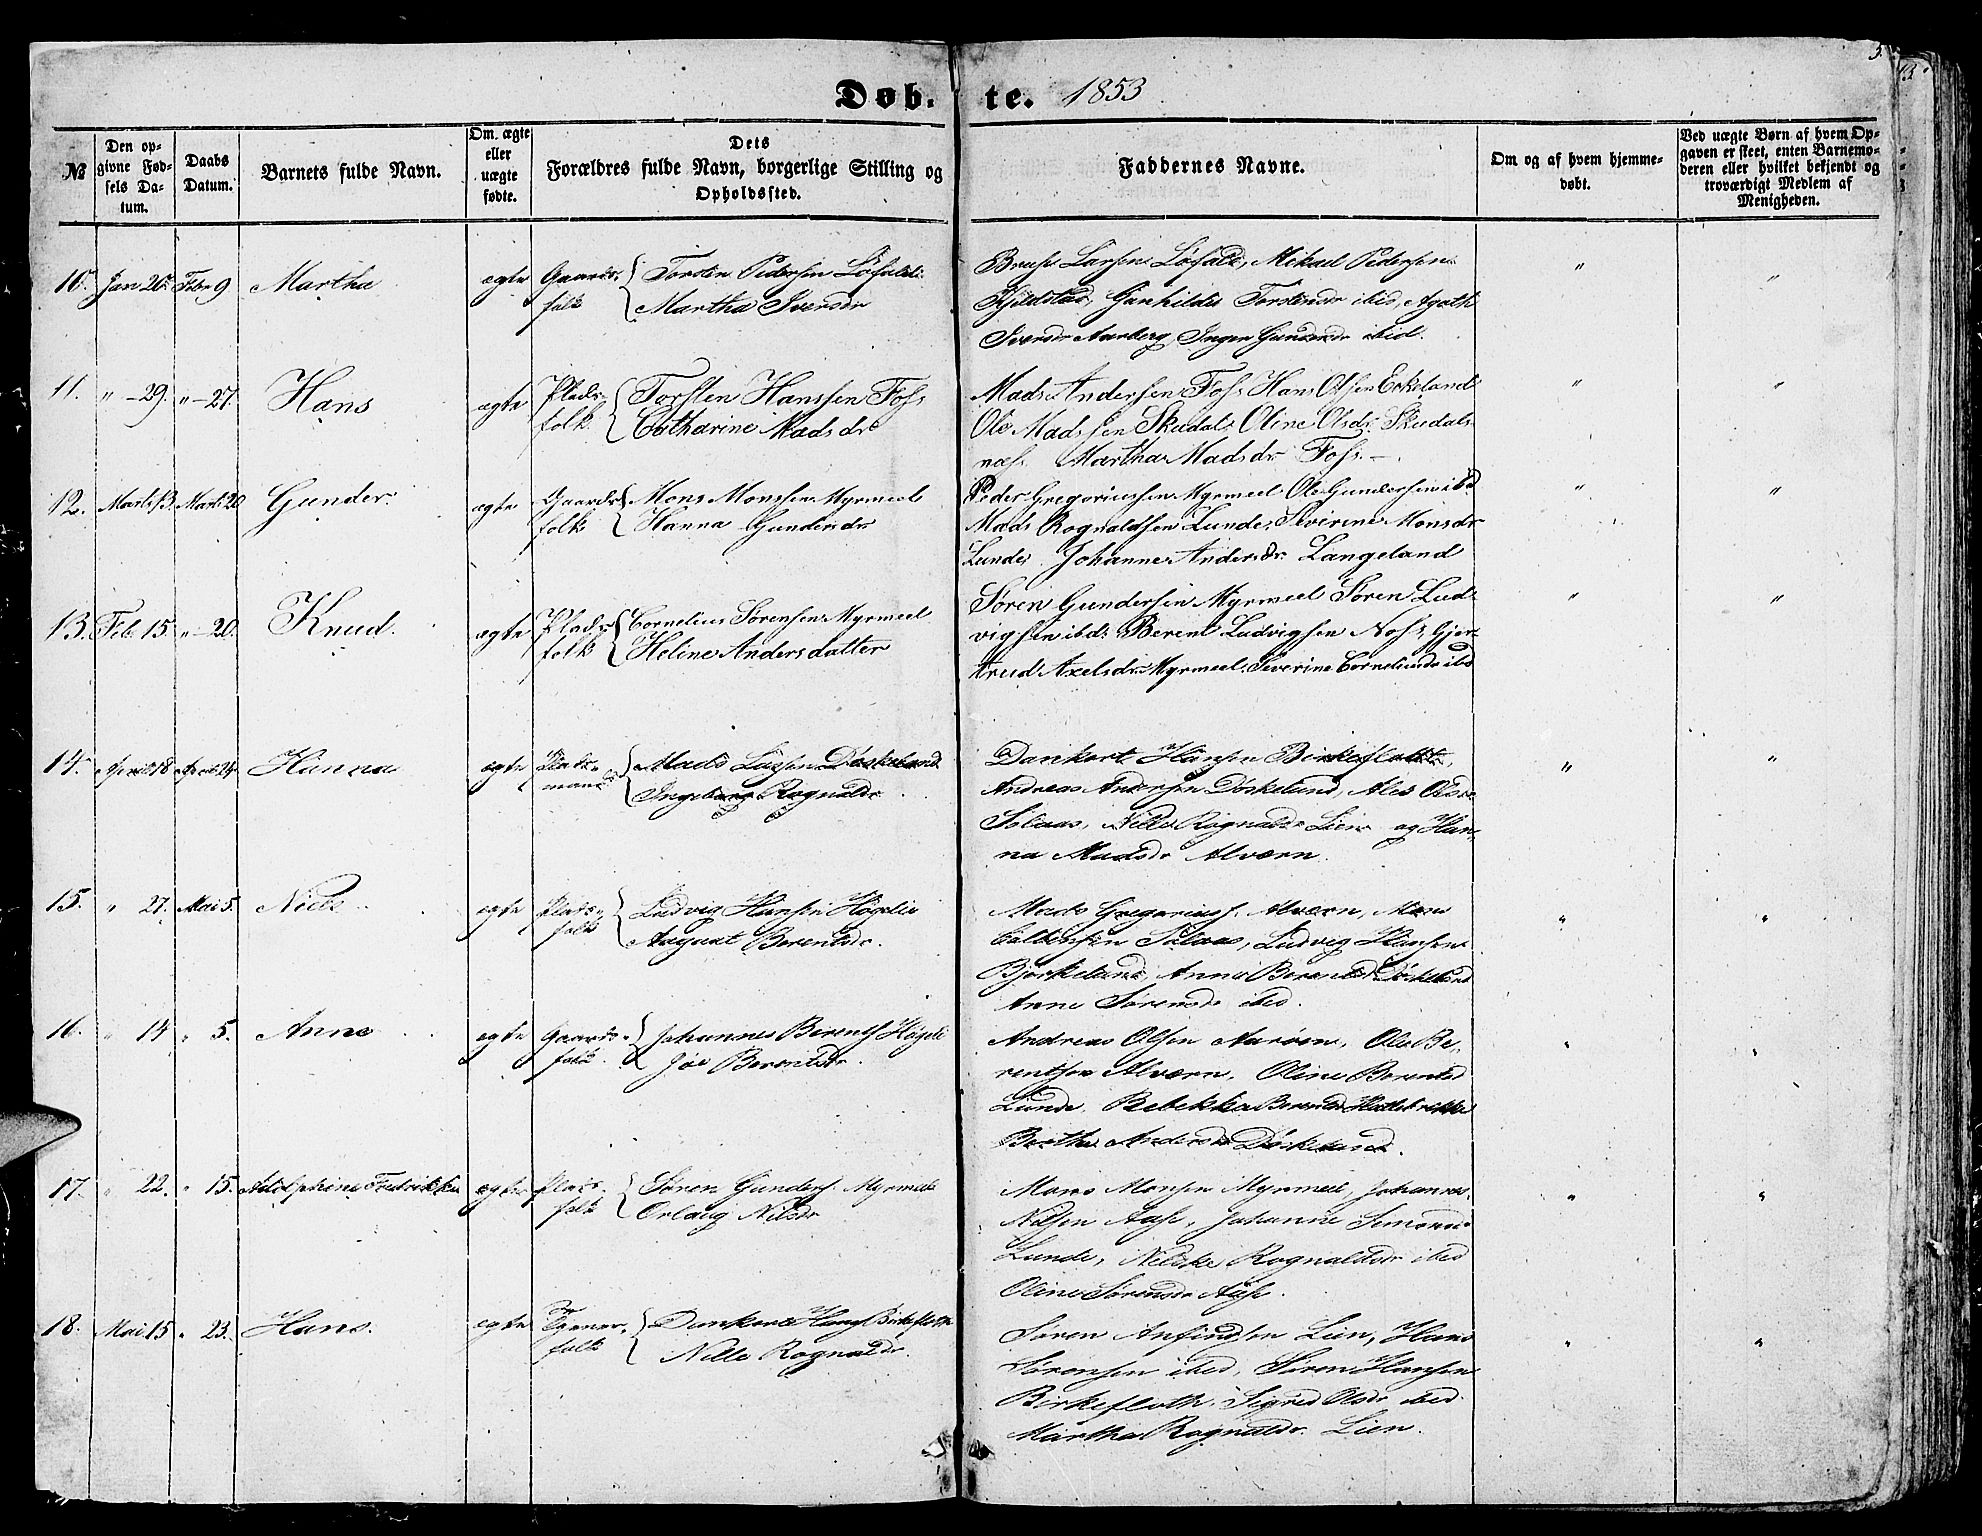 5.
Døb- te. 1853
№
Den op-
givne Fød-
sels Da-
tum.
Daabs
Datum.
Barnets fulde Navn.
Om ægte
eller
uægte
fødte.
Dets
Forældres fulde Navn, borgerlige Stilling og
Opholdssted.
Faddernes Navne.
Om og af hvem hjemme-
døbt.
Ved uægte Børn af hvem Op-
gaven er skeet, enten Barnemo-
deren eller hvilket bekjendt og
troværdigt Medlem af
Menigheden.
10. Jan 26. Febr 9 Martha ægte Gaardsfolk
Torsten Pedersen Løsfaldt
Martha Iversdr
Larsen Løsfaldt, Mikael Pedersen
Gunhilde Torstensdr ibid, Agathe
Iversdr Aarberg, Inger Gundersdr ibid.
11. " - 29. " - 27. Hans ægte Pladsfolk
Torsten Hanssen Foss
Catharine Madsdr
Mads Andersen Foss Hans Olsen Eikeland
Ole Madssen Skudals Oline Olsdr Skudals
næss Martha Madsdr Foss. -
12. Marts 13. Marts 20 Gunder. ægte Gaardsfolk
Mons Monssen Myrmeel
Hanna Gundersdr
Peder Gregoriussen Myrmeel Ole Gundersen ibd
Mads Rognaldsen Lunde, Severine Monsdr
Lunde. Johanne Andersdr. Langeland
13. Feb 15. " - 20. Knud. ægte Pladsfolk
Cornelius Sørensen Myrmeel
Heline Andersdatter
Søren Gundersen Myrmeel Søren Lud-
vigsen ibd: Berent Ludvigsen Noss, Gjer-
trud Axelsdr Myrmeel. Severine Corneliusdr ibd
14. April 18 April 24. Hanna ægte Pladsmand
Mads Larsen Døskeland
Ingeborg Rognaldsdr
Dankert Hansen Birkeflott,
Andreas Andersen Døskeland, Olsdr
Solaas, Nille Rognaldsdr Lien og Han-
na Madsdr Alværn.
15. " 27. Mai 5. Niels ægte Pladsfolk
Ludvig Hansen Høgelie
Berentsdr.
Mads Gregoriuss. Alværn, Mons
Solaas, Ludvig Hansen
Bjørkeland, Anne Berentsdr Døskeland
Anne Sørensdr ibid.
16. " 14 " 5. Anne ægte Gaardsfolk
Johannes Berents Høgeli
Berentsdr.
Andreas Olsen Aarøen, Ole Be-
rentsen Alværn, Oline Berentsd
Lunde, Rebekka Berentsd
Berthe Andersdr Døskeland.
17. " 22. " 15. Adolphine Fredrikke ægte Pladsfolk
Søren Gunders. Myrmeele
Orlaug Nilsdr
Mons Monsen Myrmeele, Johannes
Nilsen Aase, Johanne Simonsd
Lunde, Nilske Rognaldsdr ibid
Oline Sørensdr Aase.
18. Mai 15 " 23. Hans. ægte folk
Dankert Hans Birkeflotte
Nille Rognaldsdr.
Søren Anfindsen Lien, Hans
Sørensen ibid, Søren Hansen
Birkefloth. Sigrid Olsdr ibid
Martha Rognaldsdr Lien.